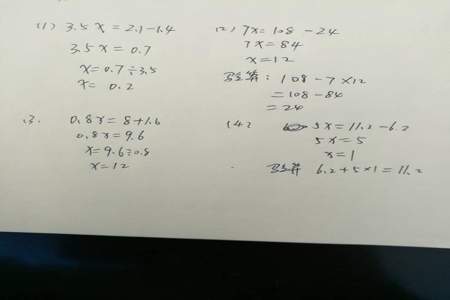 (1) 3.5x=2.1-1.4
3.5x=0.7
x=0.7÷3.5
x=0.2
(2) 7x=108-24
7x=84
x=12
验算: 108-7×12
=108-84
=24
3. 0.8x=8+1.6
0.8x=9.6
x=9.6÷0.8
x=12
(4) 5x=11.2-6.2
5x=5
x=1
验算 6.2+5×1=11.2